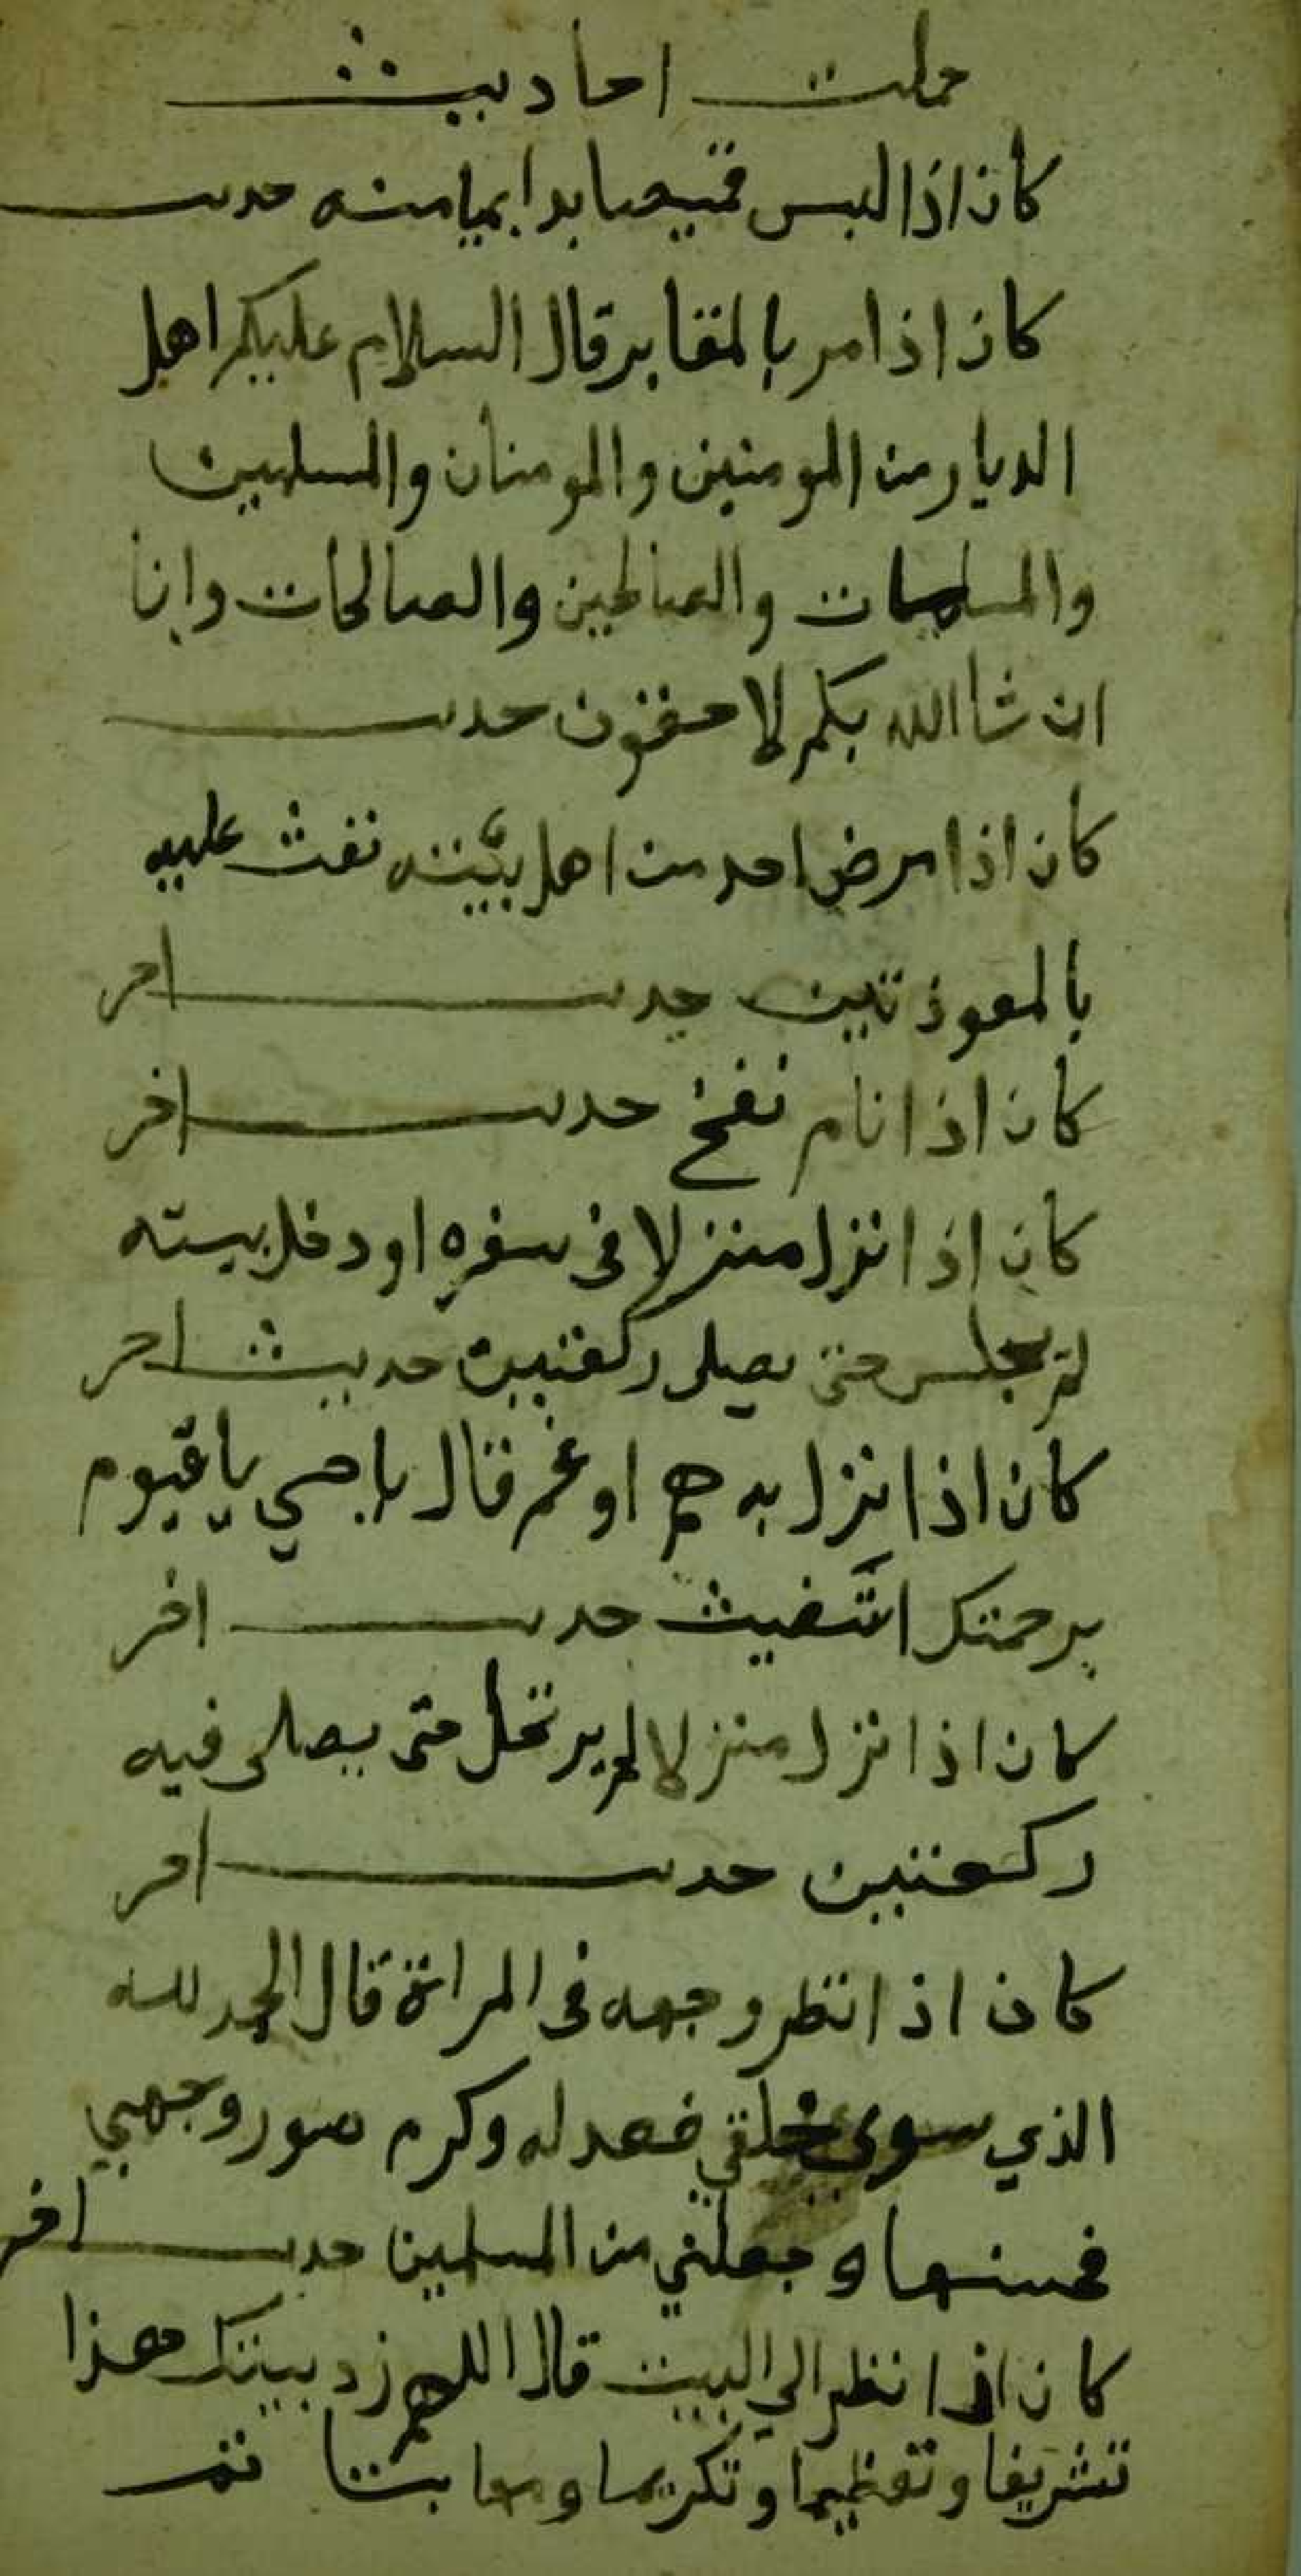 جملت احاديث
كان اذا لبس قميصا بدا بميامنه حديث
كان اذا مر بالمقابر قال السلام عليكم اهل
الديار من المومنين والمومنات والمسلمين
والمسلمات والصالحين والصالحات وانا
ان شا الله بكم لاحقون حديث
كان اذا مرض احد من اهل بيته نفث عليه
بالمعوذتين حديث اخر
كان اذا نام نفخ حديث اخر
كان اذا نزل منزلا في سفره او دخل بيته
لم يجلس حتى يصلي ركعتين حديث اخر
كان اذا نزل به هم او غم قال يا حي يا قيوم
برحمتك استغيث حديث اخر
كان اذا نزل منزلا لم يرتحل حتى يصلى فيه
ركعتين حديث اخر
كان اذا نظر وجهه في المراة قال الحمد لله
الذي سوى خلقي فعدله وكرم صور وجهي
فحسنها وجعلني من المسلمين حديث اخر
كان اذا نظر الي البيت قال اللهم زد بيتك هذا
تشريفا وتعظيما وتكريما و تم